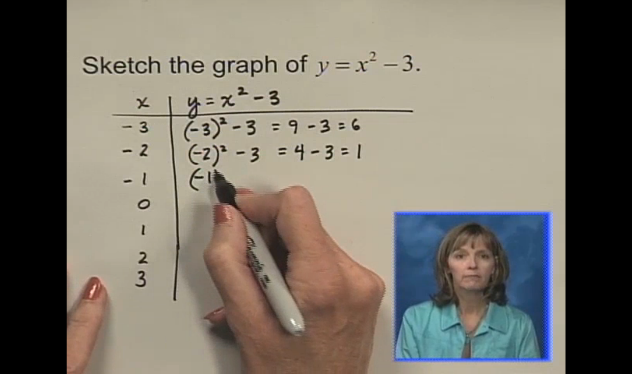 Sketch the graph of y = x² – 3.
x y = x² – 3
– 3 (–3)² – 3 = 9 – 3 = 6
– 2 (–2)² – 3 = 4 – 3 = 1
– 1 (–1
0
1
2
3